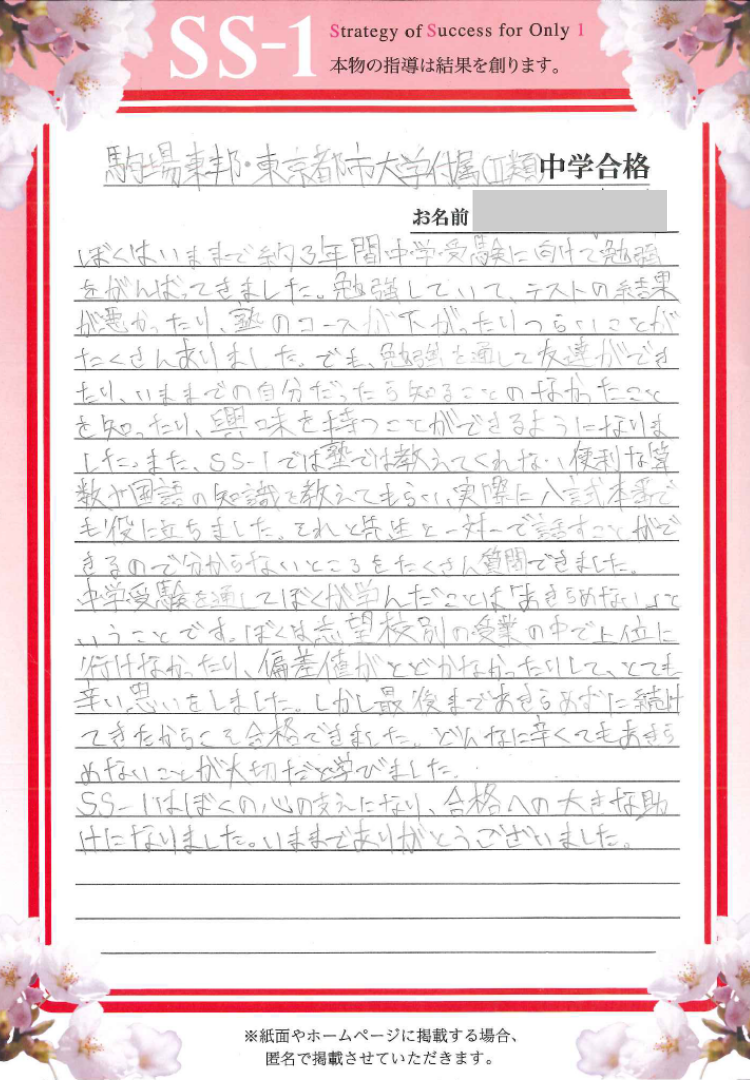 SS-1
Strategy of Success for Only 1
本物の指導は結果を創ります。
駒場東邦・東京都市大学付属(Ⅱ類)中学合格
お名前
ぼくはいままで約3年間中学受験に向けて勉強
をがんばってきました。勉強していて、テストの結果
が悪かったり、塾のコースが下がったりつらいことが
たくさんありました。でも、勉強を通して友達ができ
たり、いままでの自分だったら知ることのなかったこと
を知ったり、興味を持つことができるようになりま
した。また、SS-1では塾では教えてくれない便利な算
数や国語の知識を教えてもらい、実際に入試本番で
も役に立ちました。それと先生と一対一で話すことがで
きるので分からないところをたくさん質問できました。
中学受験を通してぼくが学んだことは「あきらめない」と
いうことです。ぼくは志望校別の授業の中で上位に
行けなかったり、偏差値がとどかなかったりして、とても
辛い思いをしました。しかし最後まであきらめずに続け
てきたからこそ合格できました。どんなに辛くてもあきら
めないことが大切だと学びました。
SS-1はぼくの心の支えになり、合格への大きな助
けになりました。いままでありがとうございました。
※紙面やホームページに掲載する場合、
匿名で掲載させていただきます。